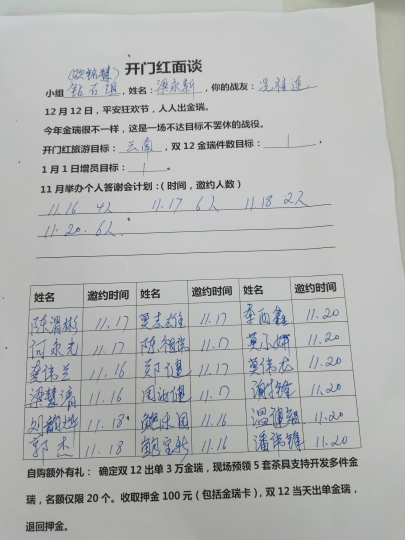 开门红面谈
小组 钻石组，姓名：梁永新，你的战友：
12月12日，平安狂欢节，人人出金瑞。
今年金瑞很不一样，这是一场不达目标不罢休的战役。
开门红旅游目标：云南，双12金瑞件数目标：1，
1月1日增员目标：1。
11月举办个人答谢会计划：（时间，邀约人数）
11.16 4人 11.17 6人 11.18 2人
11.20. 6人.
姓名 邀约时间 姓名 邀约时间 姓名 邀约时间
陈湄彬 11.17 11.17 11.20
何永光 11.17 11.17 11.20
龚伟兰 11.16 11.17 莫伟龙 11.20
梁慧清 11.16 11.17 11.20
11.18 11.16 11.20
郭杰 11.18 11.16 潘伟锋 11.20
自购额外有礼：确定双12出单3万金瑞，现场预领5套茶具支持开发多件金
瑞，名额仅限20个。收取押金100元（包括金瑞卡），双12当天出单金瑞，
退回押金。